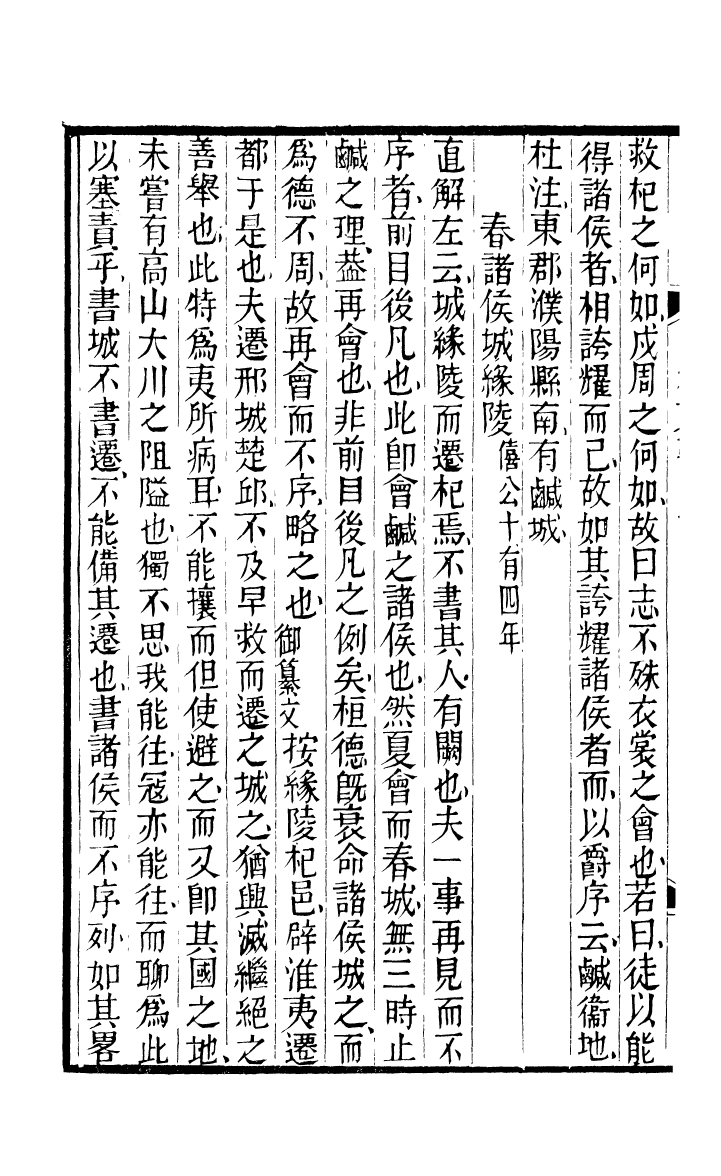 救杞之何如戍周之何如故曰志不殊衣裳之會也若曰徒以能
得諸侯者相誇耀而己故如其誇耀諸侯者而以爵序云鹹衞地
杜注東郡濮陽縣南有鹹城
春諸侯城緣陵僖公十有四年
直解左云城緣陵而遷杞焉不書其人有闕也夫一事再見而不
序者前目後凡也此卽會鹹之諸侯也然夏會而春城無三時止
鹹之理葢再會也非前目後凡之例矣桓德旣衰命諸侯城之而
爲德不周故再會而不序略之也御纂文按緣陵杞邑辟淮夷遷
都于是也夫遷邢城楚邱不及早救而遷之城之猶興滅繼絕之
善舉也此特爲夷所病耳不能攘而但使避之而又卽其國之地
未嘗有高山大川之阻隘也獨不思我能往寇亦能往而聊爲此
以塞責乎書城不書遷不能備其遷也書諸侯而不序列如其畧